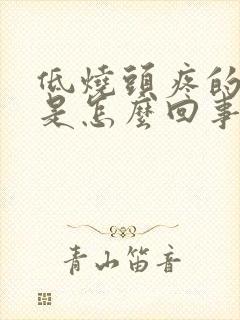 低燒頭疼的
是怎麼回事
青山笛音